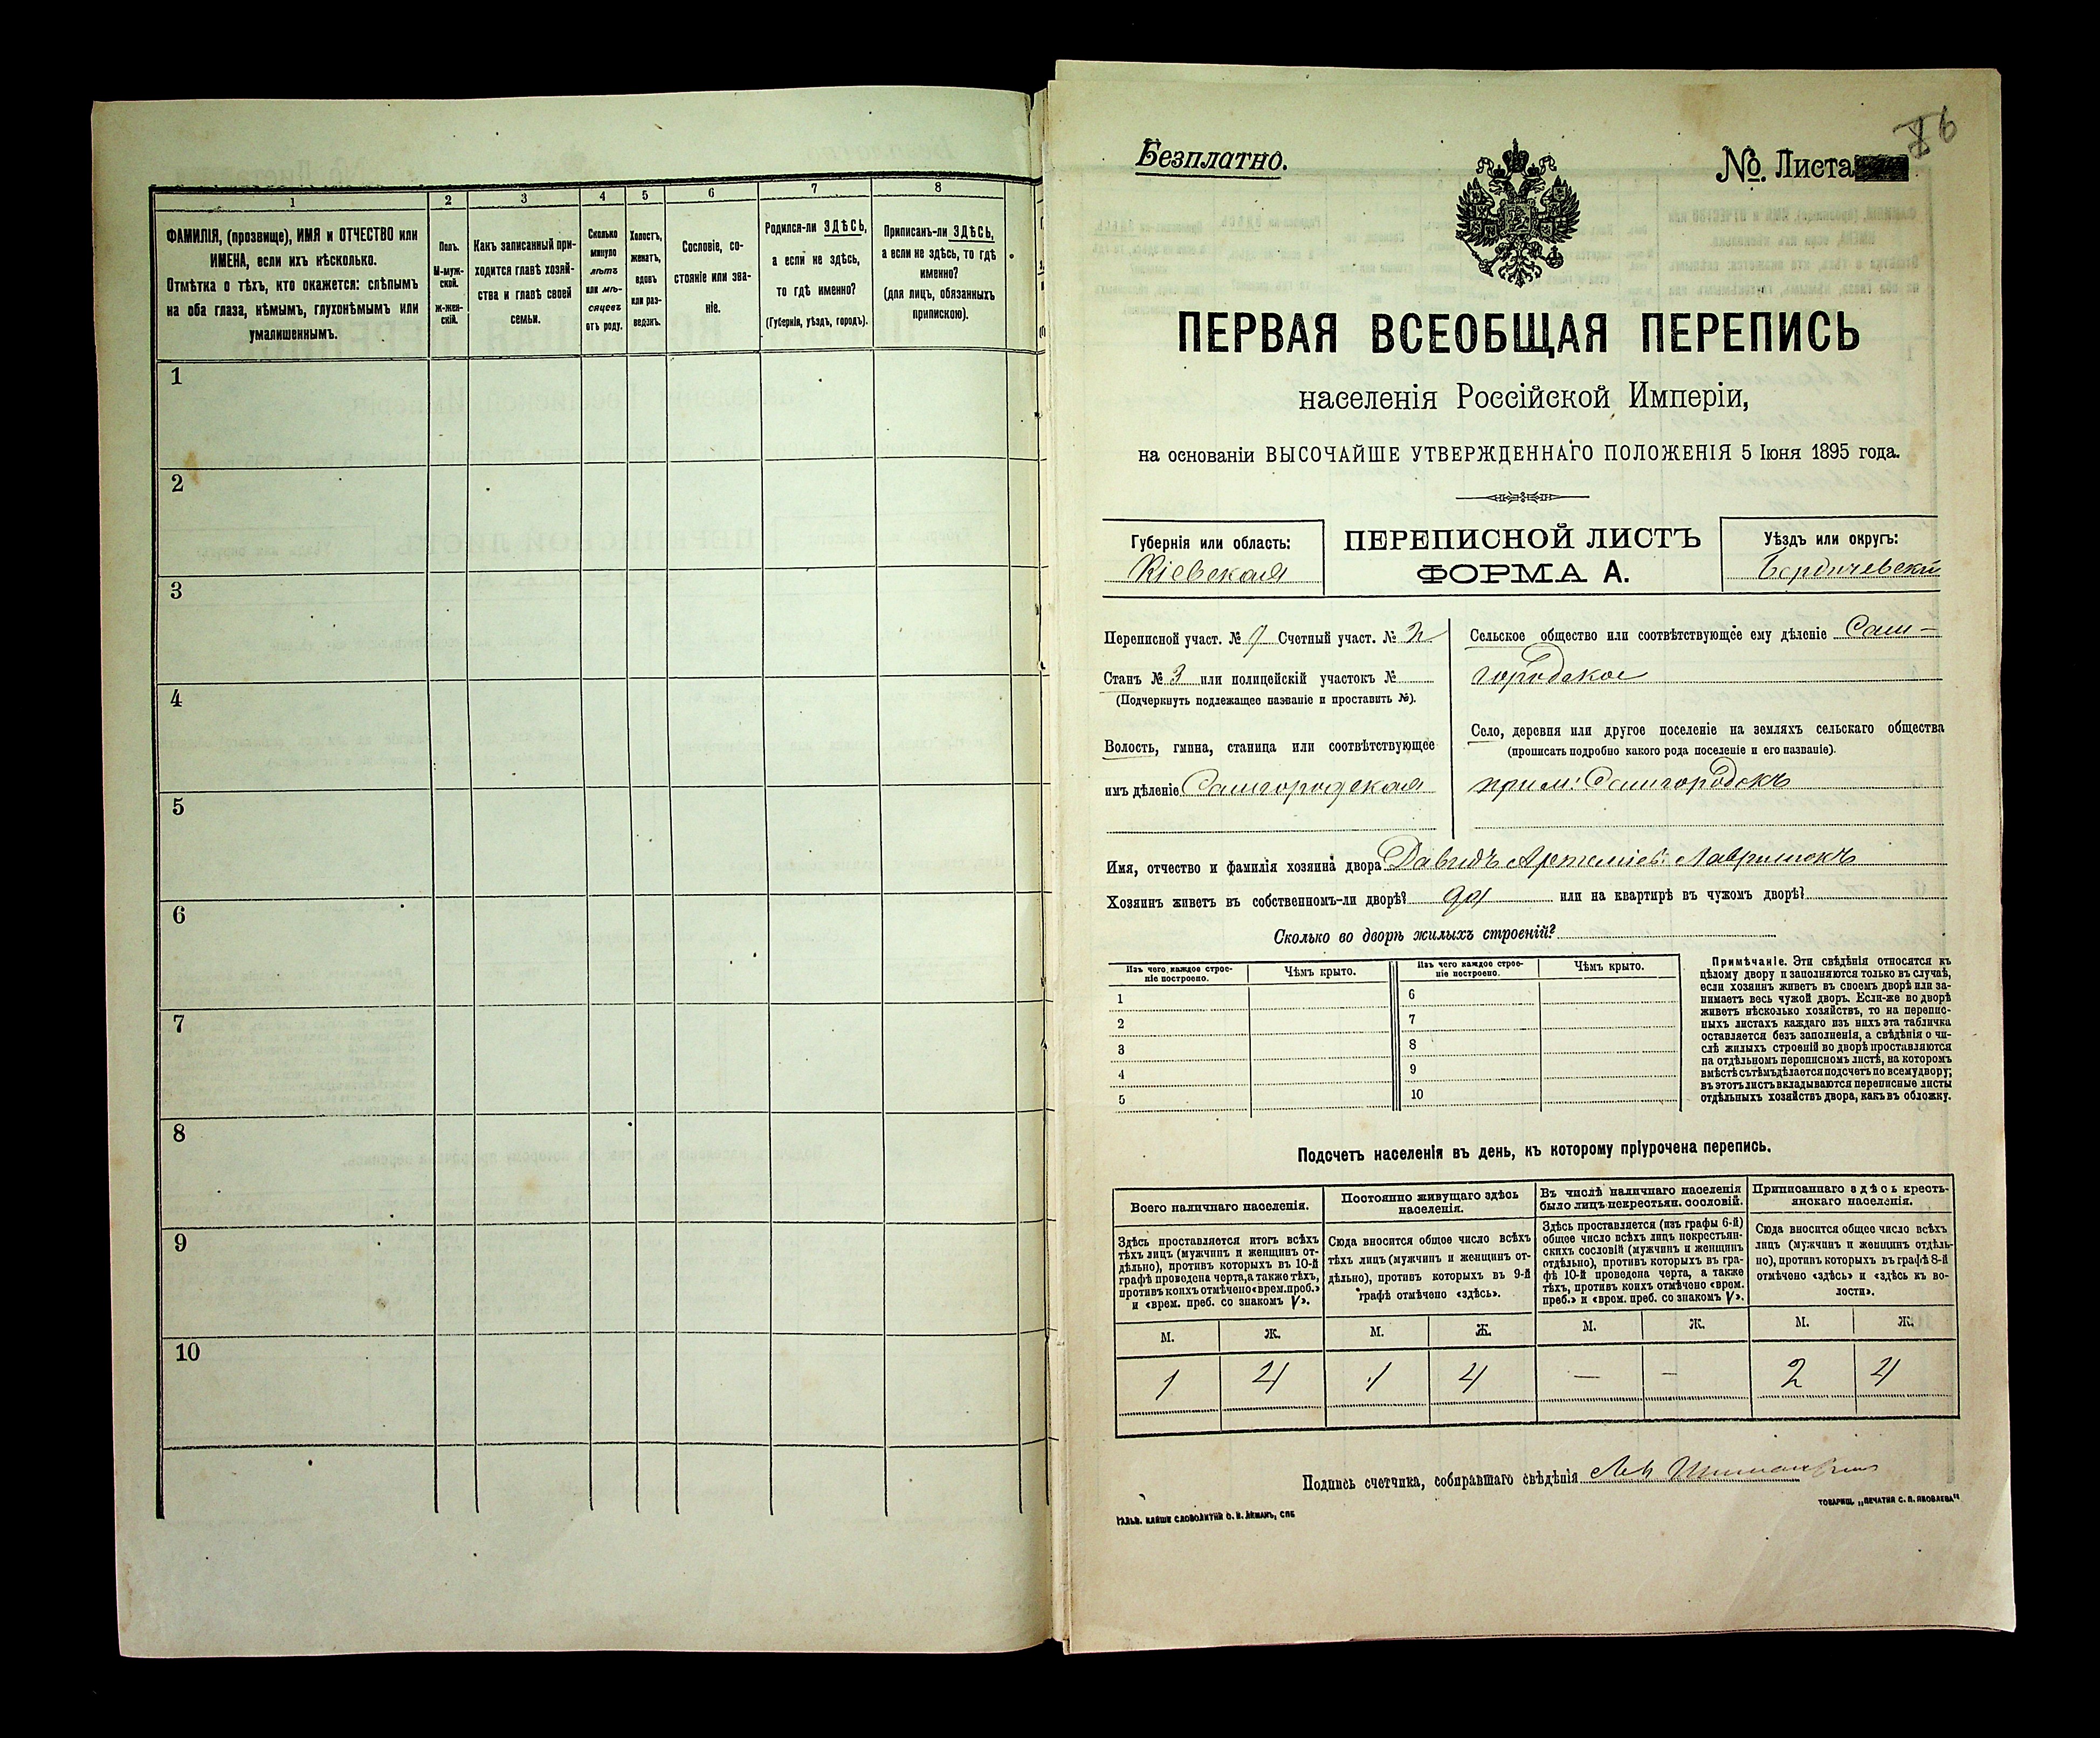 1
2
3
4
5
6
7
8
ФАМИЛІЯ, (прозвище), ИМЯ и ОТЧЕСТВО или
ИМЕНА, если ихъ нѣсколько.
Отмѣтка о тѣхъ, кто окажется: слѣпымъ
на оба глаза, нѣмымъ, глухонѣмымъ или
умалишеннымъ.
Полъ.
М-муж-
ской.
ж-жен-
скій.
Какъ записанный при-
ходится главѣ хозяй-
ства и главѣ своей
семьи.
Сколько
минуло
лѣтъ
или мѣ-
сяцевъ
отъ роду.
Холостъ,
женатъ,
вдовъ
или раз-
веденъ.
Сословіе, со-
стояніе или зва-
ніе.
Родился-ли ЗДѢСЬ,
а если не здѣсь,
то гдѣ именно?
(Губернія, уѣздъ, городъ).
Приписанъ-ли ЗДѢСЬ,
а если не здѣсь, то гдѣ
именно?
(для лицъ, обязанныхъ
припискою).
1
2
3
4
5
6
7
8
9
10
Безплатно.
№. Листа
ПЕРВАЯ ВСЕОБЩАЯ ПЕРЕПИСЬ
населенія Россійской Имперіи,
на основаніи ВЫСОЧАЙШЕ УТВЕРЖДЕННАГО ПОЛОЖЕНІЯ 5 Іюня 1895 года.
Губернія или область:
Кіевская
ПЕРЕПИСНОЙ ЛИСТЪ
ФОРМА А.
Уѣздъ или округъ:
Бердичевскій
Переписной участ. № 9 Счетный участ. № 2
Станъ № 3 или полицейскій участокъ №
(Подчеркнуть подлежащее названіе и проставить №).
Волость, гмина, станица или соотвѣтствующее
имъ дѣленіе Самгородская
Сельское общество или соотвѣтствующее ему дѣленіе Сам-
городское
Село, деревня или другое поселеніе на земляхъ сельскаго общества
(прописать подробно какого рода поселеніе и его названіе).
прим: Самгородокъ
Имя, отчество и фамилія хозяина двора Давидъ Артеміев: Лавринюкъ
Хозяинъ живетъ въ собственномъ-ли дворѣ? да или на квартирѣ въ чужомъ дворѣ?
Сколько во дворѣ жилыхъ строеній?
Изъ чего каждое строе-
ніе построено.
Чѣмъ крыто.
Изъ чего каждое строе-
ніе построено.
Чѣмъ крыто.
1
2
3
4
5
6
7
8
9
10
Примѣчаніе. Эти свѣдѣнія относятся къ
цѣлому двору и заполняются только въ случаѣ,
если хозяинъ живетъ въ своемъ дворѣ или за-
нимаетъ весь чужой дворъ. Если-же во дворѣ
живетъ нѣсколько хозяйствъ, то на перепис-
ныхъ листахъ каждаго изъ нихъ эта табличка
оставляется безъ заполненія, а свѣдѣнія о чи-
слѣ жилыхъ строеній во дворѣ проставляются
на отдѣльномъ переписномъ листѣ, на которомъ
вмѣстѣ съ тѣмъ дѣлается подсчетъ по всему двору;
въ этотъ листъ вкладываются переписные листы
отдѣльныхъ хозяйствъ двора, какъ въ обложку.
Подсчетъ населенія въ день, къ которому пріурочена перепись.
Всего наличнаго населенія.
Постоянно живущаго здѣсь
населенія.
Въ числѣ наличнаго населенія
было лицъ некрестьян. сословій.
Приписаннаго здѣсь кресть-
янскаго населенія.
Здѣсь проставляется итогъ всѣхъ
тѣхъ лицъ (мужчинъ и женщинъ от-
дѣльно), противъ которыхъ въ 10-й
графѣ проведена черта, а также тѣхъ,
противъ коихъ отмѣчено «врем. преб.»
и «врем. преб. со знакомъ V».
Сюда вносится общее число всѣхъ
тѣхъ лицъ (мужчинъ и женщинъ от-
дѣльно), противъ которыхъ въ 9-й
графѣ отмѣчено «здѣсь».
Здѣсь проставляется (изъ графы 6-й)
общее число всѣхъ лицъ некрестьян-
скихъ сословій (мужчинъ и женщинъ
отдѣльно), противъ которыхъ въ гра-
фѣ 10-й проведена черта, а также
тѣхъ, противъ коихъ отмѣчено «врем.
преб.» и «врем. преб. со знакомъ V».
Сюда вносится общее число всѣхъ
лицъ (мужчинъ и женщинъ отдѣль-
но), противъ которыхъ въ графѣ 8-й
отмѣчено «здѣсь» и «здѣсь въ во-
лости».
М. Ж. М. Ж. М. Ж. М. Ж.
1 4 1 4 — — 2 4
Подпись счетчика, собиравшаго свѣдѣнія
ГАЛЬВ. КЛИШЕ СЛОВОЛИТНИ О. И. ЛЕМАНЪ, СПБ
ТОВАРИЩ. „ПЕЧАТНЯ С. П. ЯКОВЛЕВА“